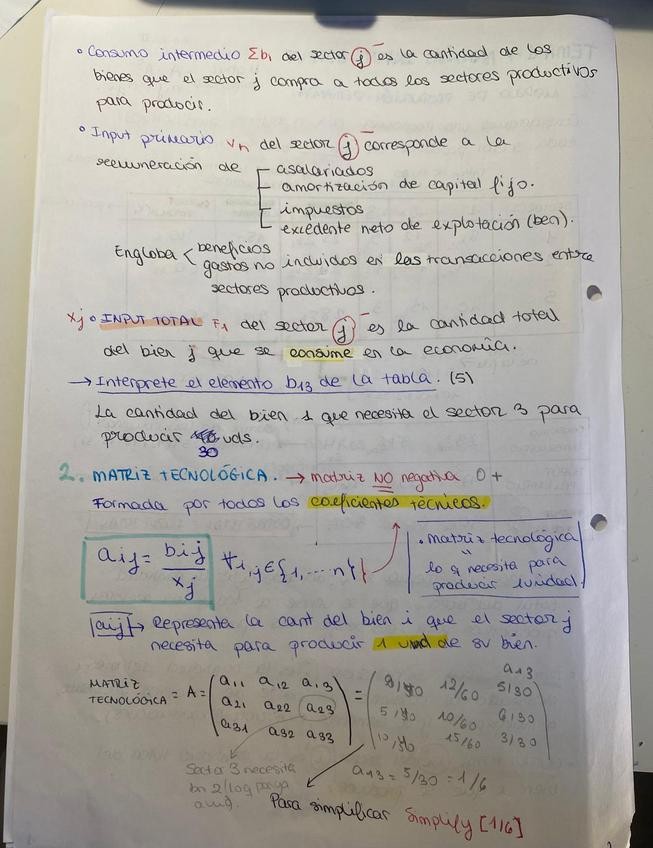 • Consumo intermedio Σb₁ del sector j es la cantidad de los
bienes que el sector j compra a todos los sectores productivos
para producir.
• Input primario vn del sector j corresponde a la
remuneración de asalariados
amortización de capital fijo.
impuestos
excedente neto de explotación (ben).
Engloba < beneficios
gastos no incluidos en las transacciones entre
sectores productivos.
Xj • INPUT TOTAL F₁ del sector j es la cantidad total
del bien j que se consume en la economía.
→ Interprete el elemento b13 de la tabla. (5)
La cantidad del bien 1 que necesita el sector 3 para
producir uds.
30
2. MATRIZ TECNOLÓGICA. → matriz NO negativa 0 +
Formada por todos los coeficientes técnicos.
aij = bij / xj ∀i,j∈{1,...n}
• matriz tecnológica
"
lo q necesita para
producir 1 unidad
aij → Representa la cant del bien i que el sector j
necesita para producir 1 und de su bien.
a13
MATRIZ TECNOLÓGICA = A = ( a11 a12 a13 ) = ( /40 12/60 5/30 )
a21 a22 a23 5/40 10/60 6/30
a31 a32 a33 10/40 15/60 3/30
Sector 3 necesita
bn 2/
a13 = 5/30 = 1/6
Para simplificar Simplify [1/6]